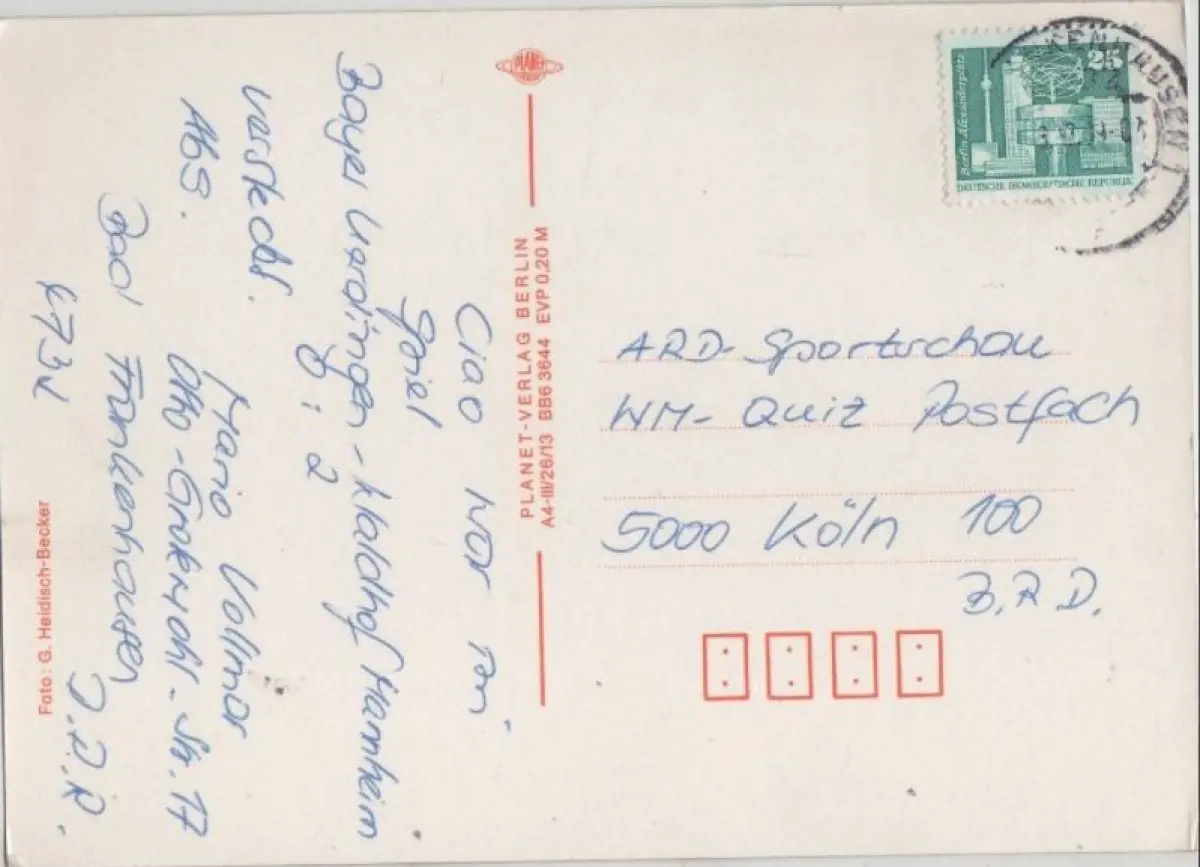 PLANET
Ciao war im
Spiel
Bayer Uerdingen - Waldhof Mannheim
0 : 2
Abs. Mario
Str. 17
Bad Frankenhausen
4732 D.D.R.
Foto: G. Heidisch-Becker
PLANET-VERLAG BERLIN
A4-III/26/13 BB6 3644 EVP 0,20 M
25
Berlin Alexanderplatz
DEUTSCHE DEMOKRATISCHE REPUBLIK
KENHAUSEN 1
ARD-Sportschau
WM-Quiz Postfach
5000 Köln 100
B.R.D.